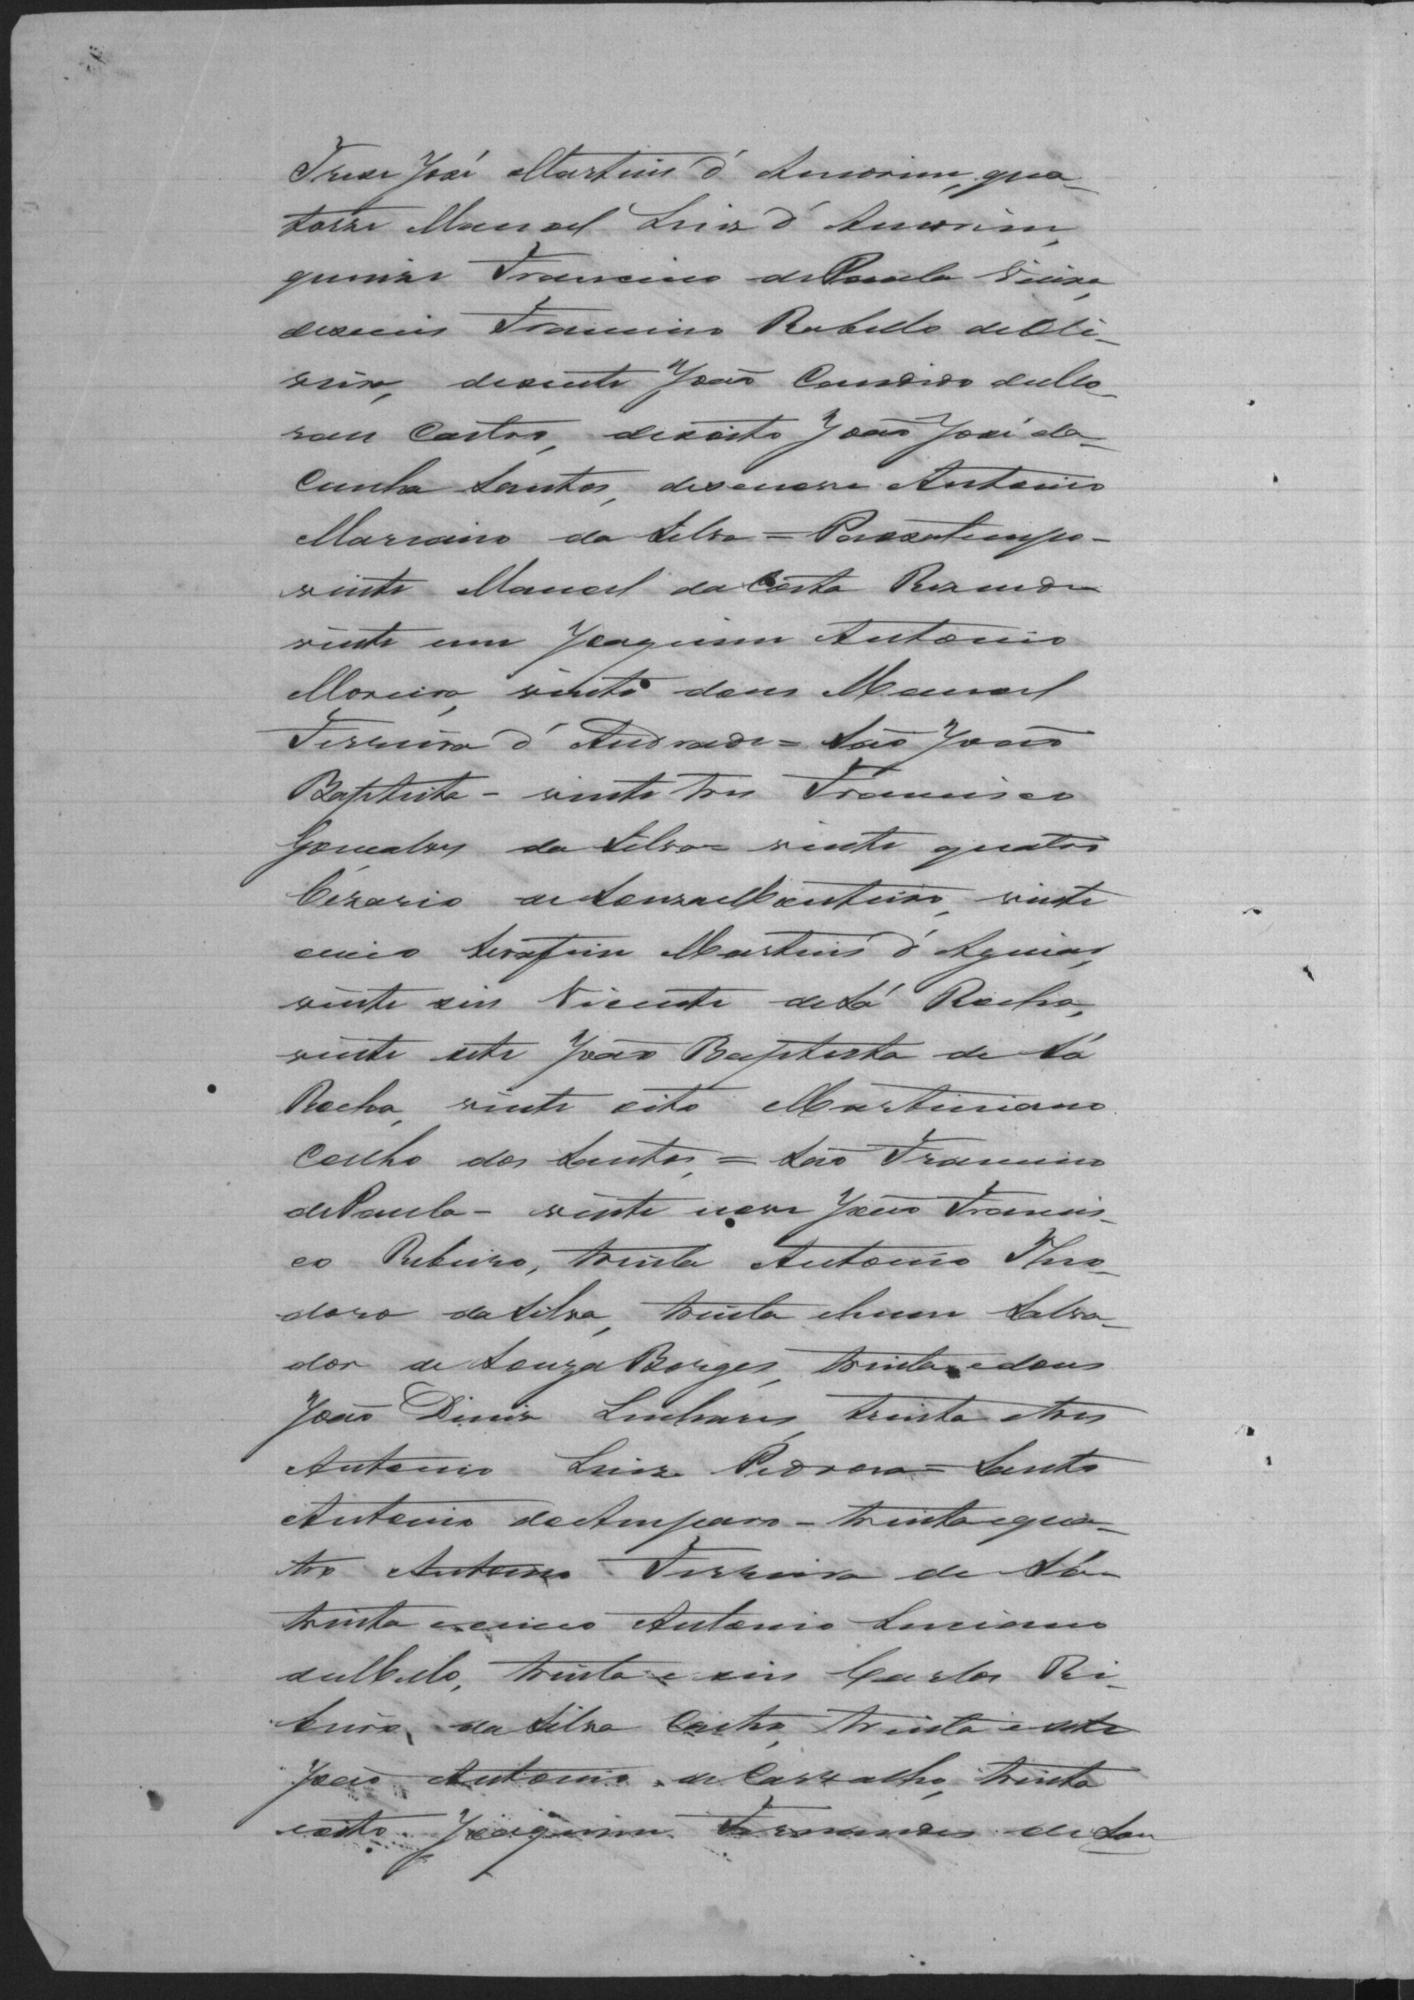 Treze José Martins d'Amorim, qua-
torze Manoel Luiz d'Amorim,
quinze Francisco de Paula Vieira,
dezeseis Francisco Rabello de Oli-
veira, dezesete João Candido de Mo-
raes Castro, dezoito João José da
Cunha Santos, dezenove Antonio
Marciano da Silva = Passatempo -
vinte Manoel da Costa Rezende
vinte um Joaquim Antonio
Moreira, vinte dous Manoel
Ferreira d'Andrade = São João
Baptista - vinte tres Francisco
Gonçalves da Silva = vinte quatro
Cézario de Souza Monteiro, vinte
cinco Serafim Martins d'Aguiar,
vinte seis Vicente de Sá Rocha,
vinte sete João Baptista de Sá
Rocha, vinte oito Martiniano
Coelho dos Santos, = São Francisco
de Paula - vinte nove João Francis-
co Ribeiro, trinta Antonio Theo-
doro da Silva, trinta e hum Salva-
dor de Souza Borges, trinta e dous
João Diniz Linhares, trinta e tres
Antonio Luiz Pedroza = Santo
Antonio do Amparo - trinta e qua-
tro Antonio Ferreira de Sá -
trinta e cinco Antonio Luciano
de Mello, trinta e seis Carlos Ri-
beiro da Silva Castro, trinta e sete
João Antonio de Carvalho, trinta
e oito Joaquim Fernandes de Sou